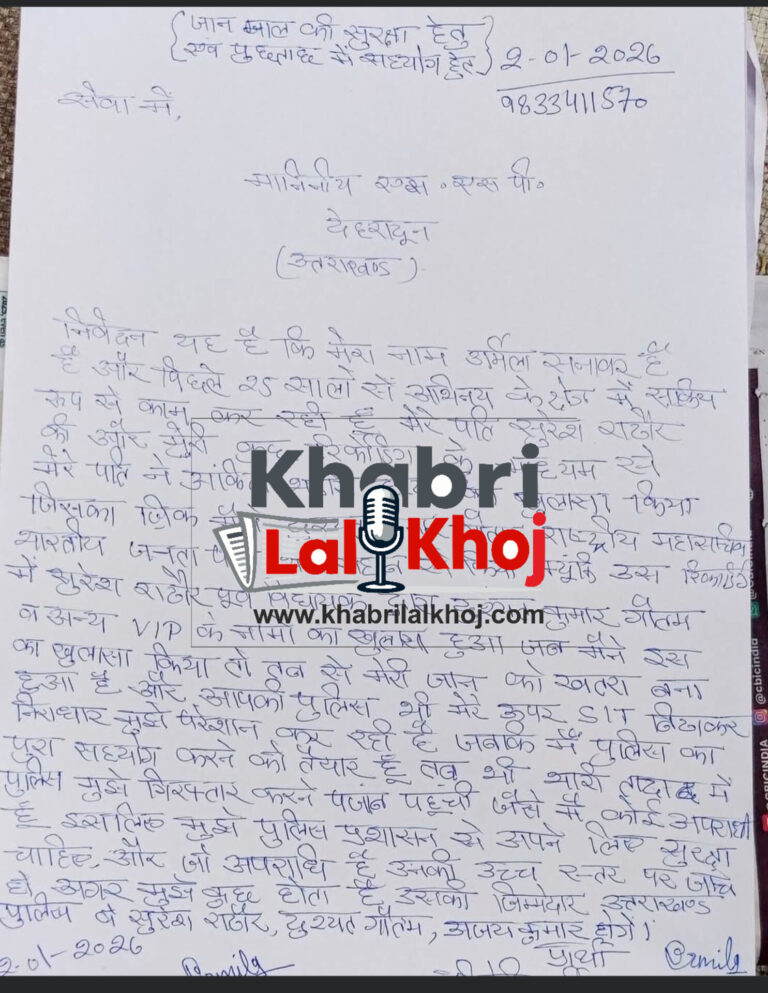 { जान माल की सुरक्षा हेतु }
{ एवं पुछताछ में सहयोग हेतु }
2-01-2026
9833411570
सेवा में,
माननीय एस॰एस पी॰
देहरादून
(उत्तराखण्ड)
निवेदन यह है कि मेरा नाम उर्मिला सनावर है
है और पिछले 25 सालों से अभिनय के क्षेत्र में सक्रिय
रूप से काम कर रही हूँ मेरे पति सुरेश राठौर
की और मेरी कुछ
मेरे पति ने अंकिता खुलासा किया
जिसका ज़िक्र राष्ट्रीय महासचिव
भारतीय जनता क्यूंकि उस रिकॉर्डिंग
में सुरेश राठौर पूर्व विधायक कुमार गौतम
व अन्य VIP के नामों का खुलासा हुआ जब मैंने इस
का खुलासा किया तो तब से मेरी जान को खतरा बना
हुआ है और आपकी पुलिस भी मेरे ऊपर SIT बिठाकर
निराधार मुझे परेशान कर रही है जबकि मैं पुलिस का
पुरा सहयोग करने को तैयार हूँ तब भी भारी तादाद में
पुलिस मुझे गिरफ्तार करने पहुंची जैसे मैं कोई अपराधी
हूँ इसलिए मुझे पुलिस प्रशासन से अपने लिए सुरक्षा
चाहिए और जो अपराधि है उनकी उच्च स्तर पर जांच
हो अगर मुझे कुछ होता है उसकी जिम्मेदार उत्तराखण्ड
पुलिस व सुरेश राठौर, दुश्यत गौतम, अजय कुमार होंगे।
प्रार्थी
2-01-2026
Khabri
Lal Khoj
www.khabrilalkhoj.com
@cbicindia